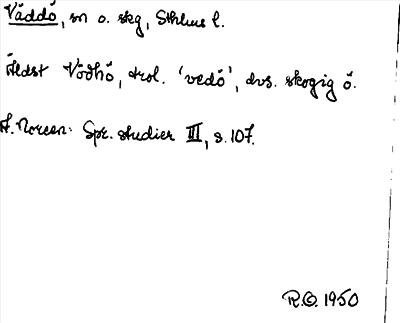 Väddö, sn o. skg, Sthlms l.
Äldst Vödhö, trol. 'vedö', dvs. skogig ö.
A. Noreen: Spr. studier III, s. 107.
R.O. 1950